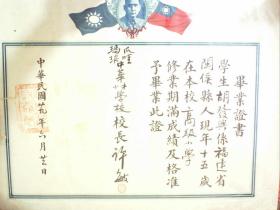 畢業證書
學生胡俊興係福建省
閩侯縣人現年十五歲
在本校高級小學
修業期滿成績及格准
予畢業此證
瑪琅中華學校校長許
中華民國廿九年六月廿三日